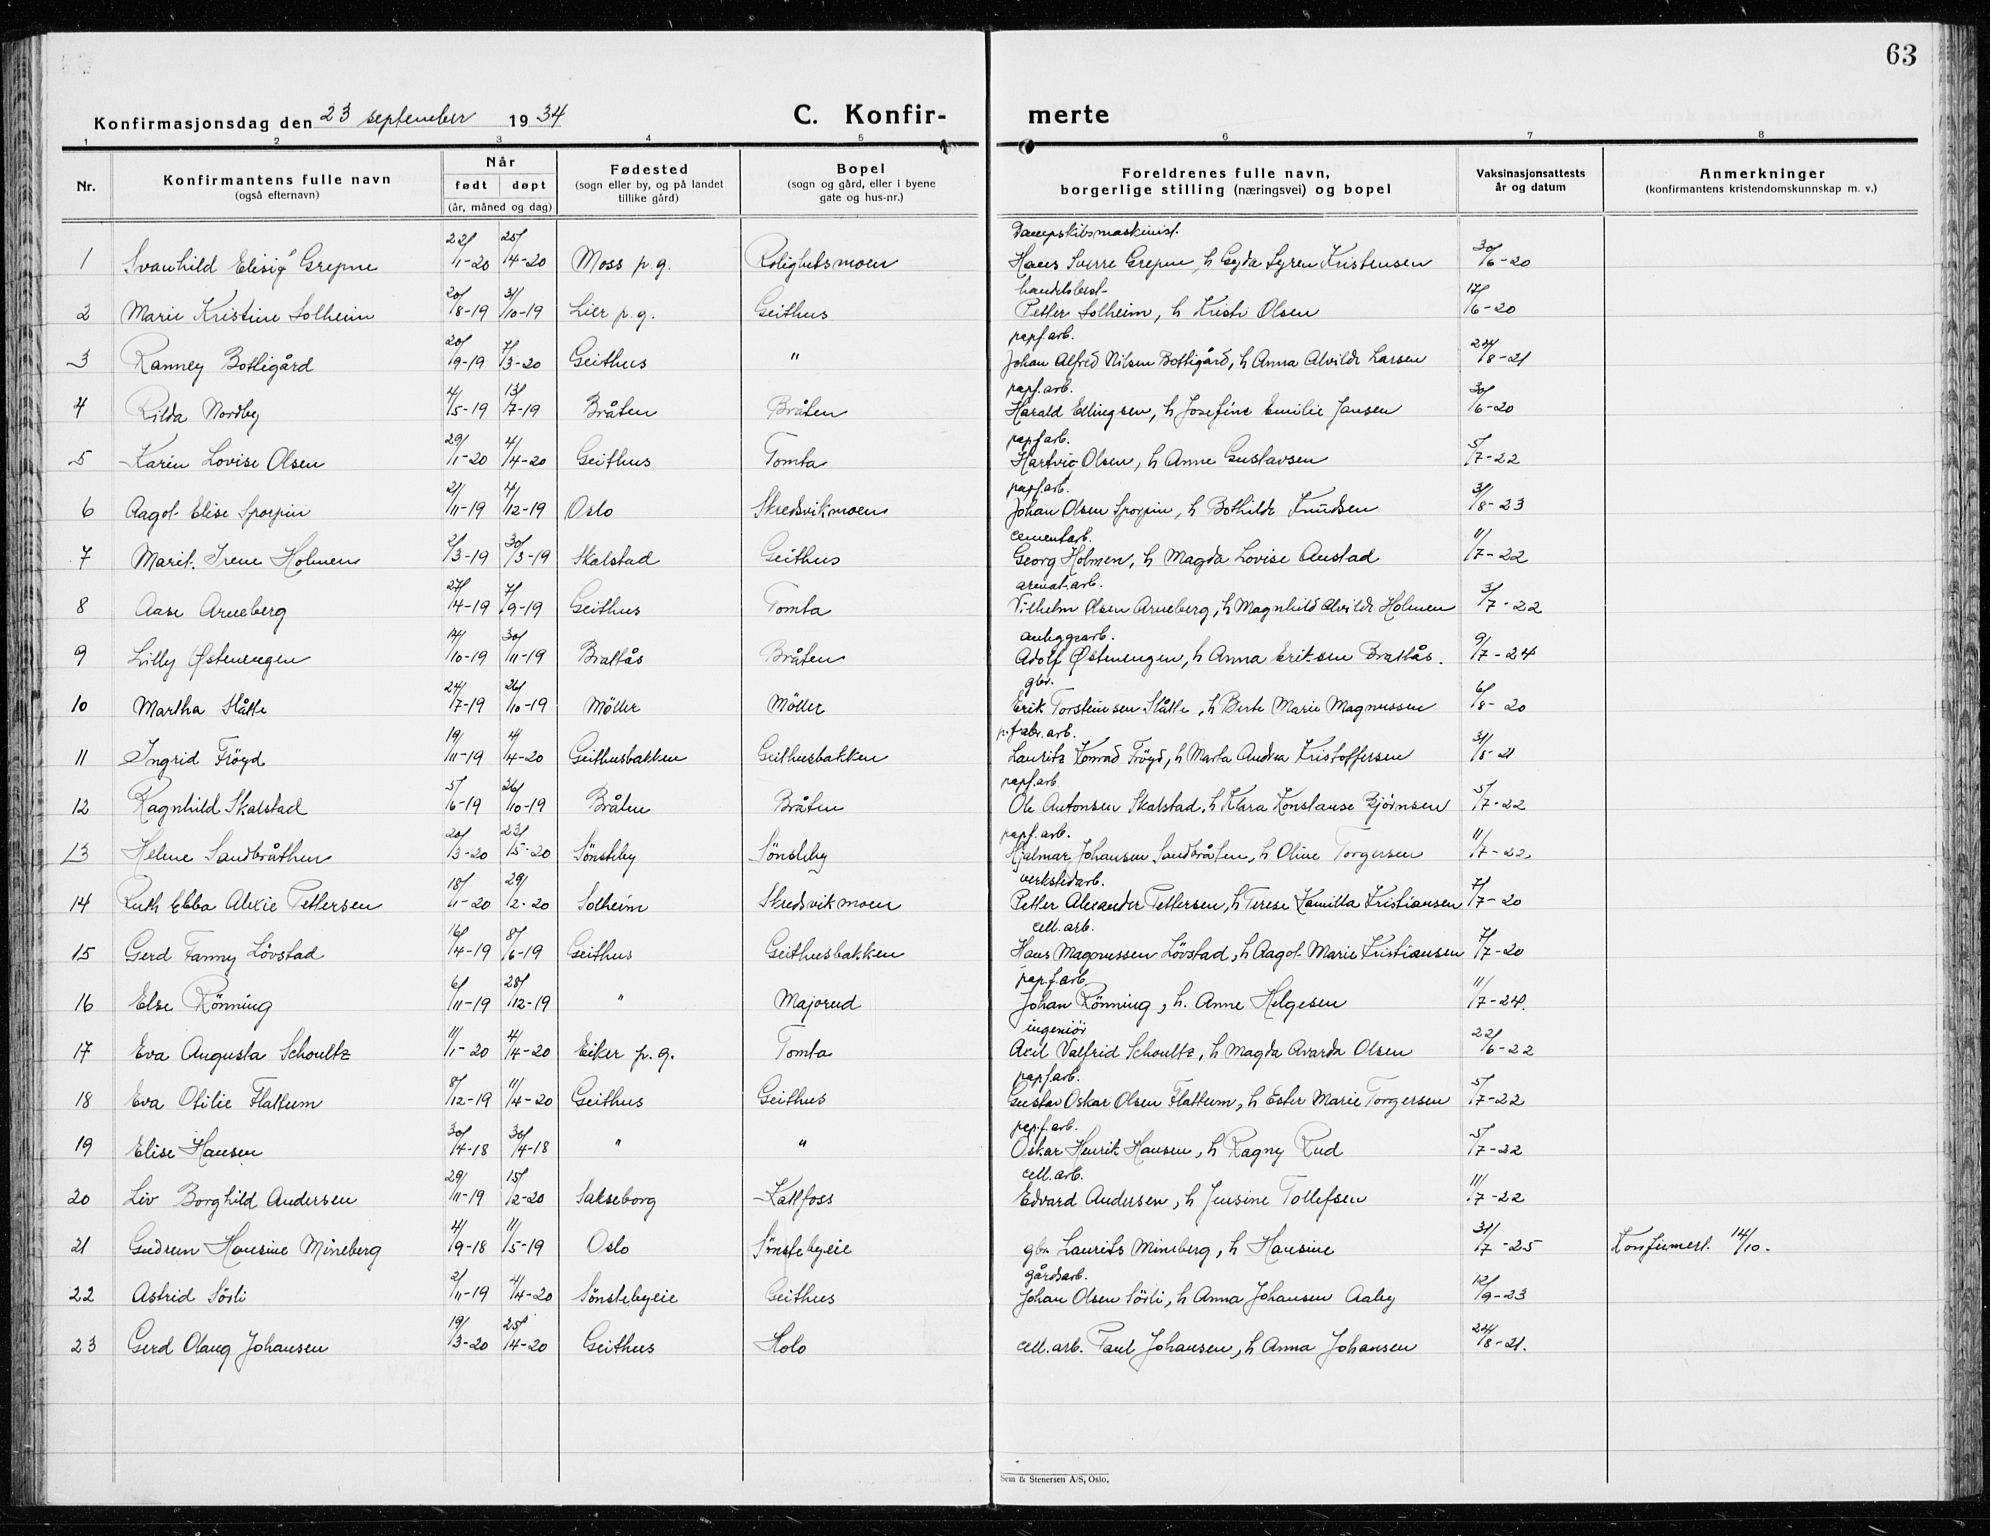 63
Konfirmasjonsdag den 23 september 1934
C. Konfirmerte
1 2 3 4 5 6 7 8
Nr. | Konfirmantens fulle navn (også efternavn) | Når født døpt (år, måned og dag) | Fødested (sogn eller by, og på landet tillike gård) | Bopel (sogn og gård, eller i byene gate og hus-nr.) | Foreldrenes fulle navn, borgerlige stilling (næringsvei) og bopel | Vaksinasjonsattests år og datum | Anmerkninger (konfirmantens kristendomskunnskap m. v.)
Dampskibsmaskinist.
1 Svanhild Elisif Grepne 22/1-20 25/4-20 Moss p.g. Rolighetsmoen Hans Sverre Grepne, h Gyda Syren Kristensen 30/6-20
handelsbest-
2 Marie Kristine Solheim 20/8-19 31/10-19 Lier p.g. Geithus Petter Solheim, h Kristi Olsen 17/6-20
papf arb.
3 Ranney Bottigård 20/9-19 7/3-20 Geithus " Johan Alfred Nilsen Bottigård, h Anna Alvilde Larsen 24/8-21
papf. arb.
4 Rilda Nordby 4/5-19 13/7-19 Bråten Bråten Harald Ellingsen, h Josefine Emilie Jansen 30/6-20
papf arb.
5 Karin Lovise Olsen 29/1-20 4/4-20 Geithus Tomta Hartvig Olsen, h Anne Gustavsen 5/7-22
papf. arb.
6 Aagot Elise Sporpin 21/11-19 4/12-19 Oslo Skredsvikmoen Johan Olsen Sporpin, h Bothilde Knudsen 31/8-23
cementarb.
7 Marit Irene Holmen 2/3-19 30/3-19 Skalstad Geithus Georg Holmen, h Magda Lovise Austad 11/7-22
8 Aase Arneberg 27/4-19 7/9-19 Geithus Tomta Vilhelm Olsen Arneberg, h Magnhild Alvilde Holmen 3/7-22
anleggsarb.
9 Lilly Østenengen 14/10-19 30/11-19 Brattås Bråten Adolf Østenengen, h Anna Eriksen Brattås. 9/7-24
gbr.
10 Martha Slåtte 24/7-19 26/10-19 Möller Möller Erik Torsteinsen Slåtte, h Berte Marie Magnussen 6/8-20
p.fabr. arb.
11 Ingrid Fröyd 19/11-19 4/4-20 Geithusbakken Geithusbakken Lauritz Konrad Fröyd, h Marta Andrea Kristoffersen 31/8-21
papf. arb
12 Ragnhild Skalstad 5/6-19 26/10-19 Bråten Bråten Ole Antonsen Skalstad, h Klara Konstanse Bjørnsen 5/7-22
papf. arb.
13 Helene Sandbråthen 20/3-20 23/5-20 Sönsteby Sönsteby Hjalmar Johansen Sandbråten, h Oline Torgersen 11/7-22
verkstedarb.
14 Ruth Ebba Alexie Pettersen 18/1-20 29/2-20 Solheim Skredsvikmoen Petter Alexander Pettersen, h Terese Kamilla Kristiansen 7/7-20
cell. arb.
15 Gerd Fanny Lövstad 16/4-19 8/6-19 Geithus Geithusbakken Hans Magnussen Lövstad, h Aagot Marie Kristiansen 7/7-20
papf. arb
16 Else Rönning 6/11-19 28/12-19 " Majorud Johan Rönning, h. Anne Helgesen 11/7-24.
ingeniör
17 Eva Augusta Schoultz 11/1-20 4/4-20 Eiker p.g. Tomta Axil Valfrid Schoultz, h Magda Avarda Olsen 22/6-22
papf. arb.
18 Eva Otilie Flattum 8/12-19 11/4-20 Geithus Geithus Gustav Oskar Olsen Flattum, h Ester Marie Torgersen 5/7-22
papf. arb.
19 Elise Hansen 30/4-18 30/4-18 " " Oskar Henrik Hansen, h Ragny Rud 5/7-22
cell. arb.
20 Liv Borghild Andersen 29/11-19 15/2-20 Sakseborg Kattfoss Edvard Andersen, h Jensine Tollefsen 11/7-22
21 Gudrun Hansine Mineberg 4/9-18 11/5-19 Oslo Sønstebyeie gbr Laurits Mineberg, h Hansine 31/7-25 Konfirmert 14/10.
gårdsarb.
22 Astrid Sörli 2/11-19 4/4-20 Sönstebyeie Geithus Johan Olsen Sörli, h Anna Johansen Aaby 12/9-23
23 Gerd Olaug Johansen 19/3-20 25/4-20 Geithus Holo cell. arb. Paul Johansen, h Anna Johansen 24/8-21.
Sem & Stenersen A/S, Oslo.